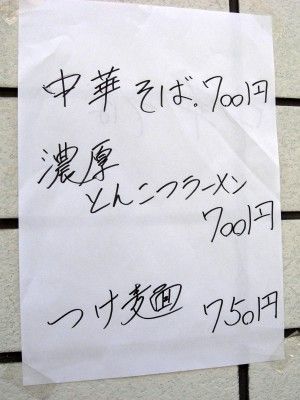 中華そば。700円
濃厚
とんこつラーメン
700円
つけ麺 750円